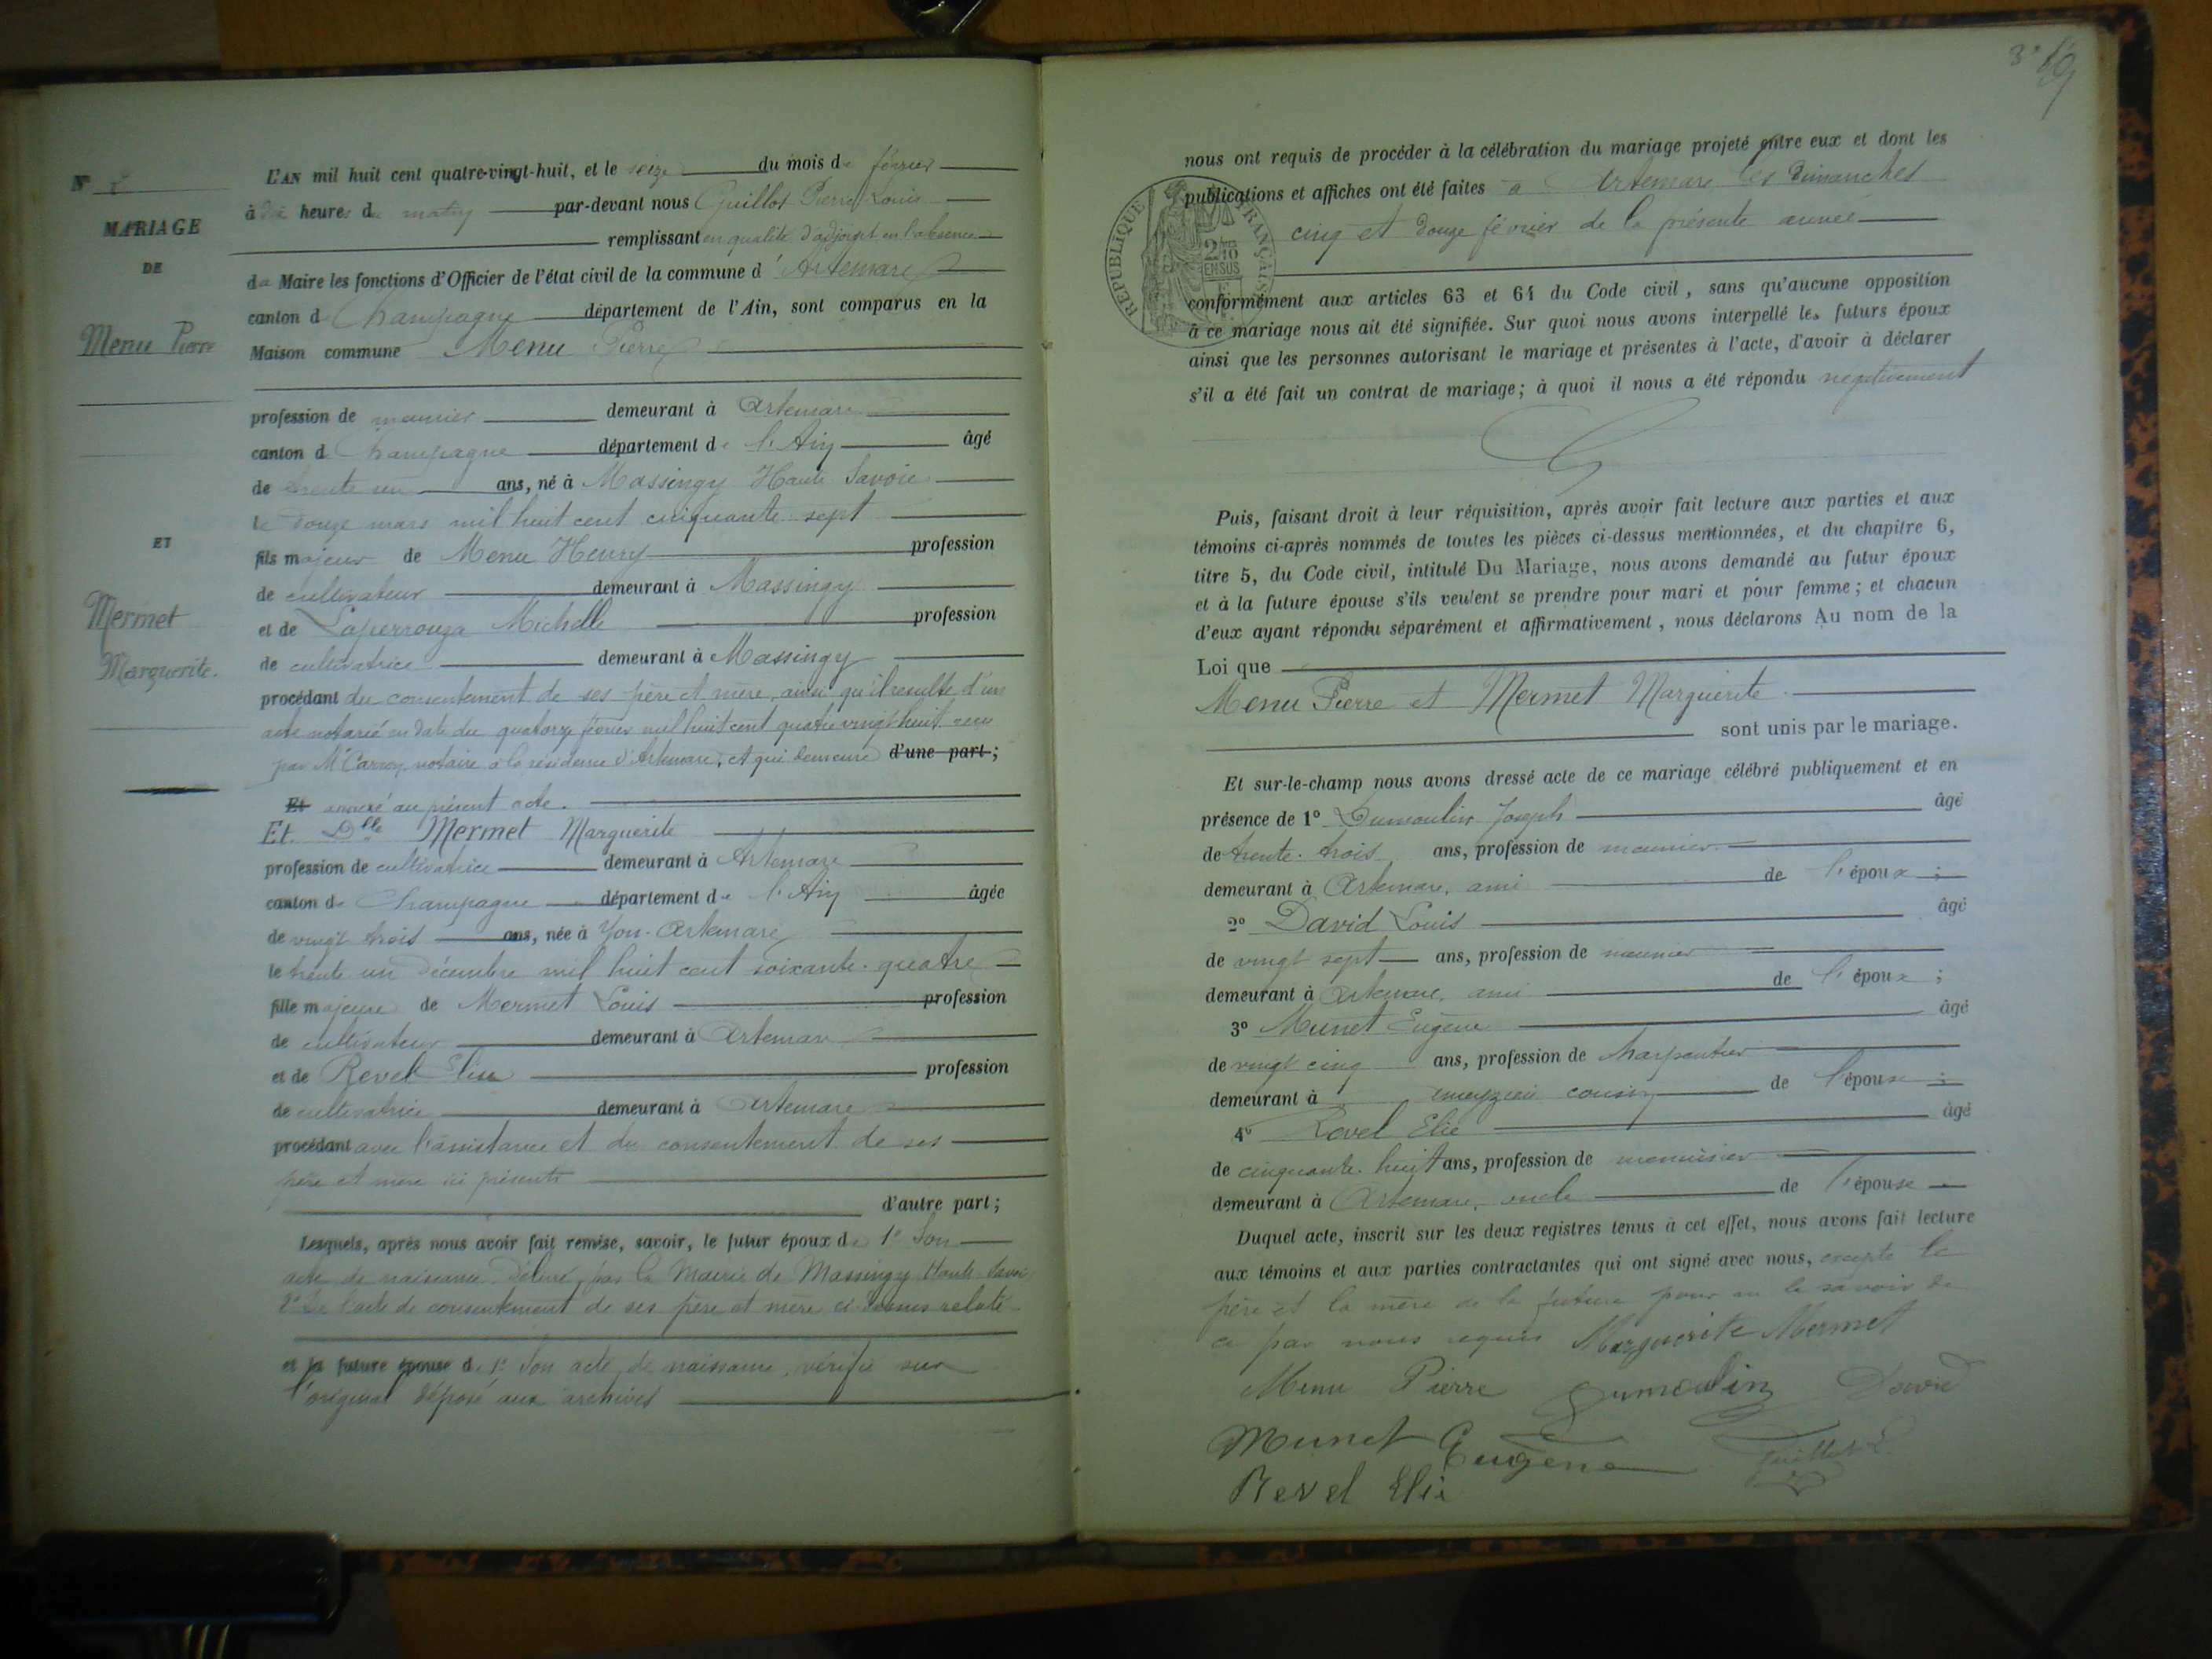 N°
MARIAGE
DE
Menu Pierre
ET
Mermet
Marguerite.
L'AN mil huit cent quatre-vingt-huit, et le seize du mois de février
à dix heures du matin par-devant nous Guillot Pierre Louis
remplissant en qualité d'adjoint en l'absence
du Maire les fonctions d'Officier de l'état civil de la commune d'Artemare
canton de Champagne département de l'Ain, sont comparus en la
Maison commune Menu Pierre
profession de meunier demeurant à Artemare
canton de Champagne département de l'Ain âgé
de trente un ans, né à Massingy Haute Savoie
le douze mars mil huit cent cinquante sept
fils majeur de Menu Henry profession
de cultivateur demeurant à Massingy
et de Laperrouza Michelle profession
de cultivatrice demeurant à Massingy
procédant du consentement de ses père et mère, ainsi qu'il resulte d'un
acte notarié en date du quatorze février mil huit cent quatre vingt huit reçu
par Me Carron notaire à la résidence d'Artemare, et qui demeure d'une part;
Et annexé au présent acte.
Et Dlle Mermet Marguerite
profession de cultivatrice demeurant à Artemare
canton de Champagne département de l'Ain âgée
de vingt trois ans, née à Yon-Artemare
le trente un décembre mil huit cent soixante quatre
fille majeure de Mermet Louis profession
de cultivateur demeurant à Artemare
et de Revel Elisa profession
de cultivatrice demeurant à Artemare
procédant avec l'assistance et du consentement de ses
père et mère ici présents
d'autre part;
Lesquels, après nous avoir fait remise, savoir, le futur époux de 1° Son
acte de naissance délivré par la Mairie de Massingy Haute Savoie
2° De l'acte de consentement de ses père et mère ci-dessus relaté
et la future épouse de 1° Son acte de naissance, vérifié sur
l'original déposé aux archives
3° 69
nous ont requis de procéder à la célébration du mariage projeté entre eux et dont les
publications et affiches ont été faites à Artemare les Dimanches
cinq et douze février de la présente année
REPUBLIQUE FRANÇAISE
2/10 EN SUS
conformément aux articles 63 et 64 du Code civil, sans qu'aucune opposition
à ce mariage nous ait été signifiée. Sur quoi nous avons interpellé les futurs époux
ainsi que les personnes autorisant le mariage et présentes à l'acte, d'avoir à déclarer
s'il a été fait un contrat de mariage; à quoi il nous a été répondu négativement
Puis, faisant droit à leur réquisition, après avoir fait lecture aux parties et aux
témoins ci-après nommés de toutes les pièces ci-dessus mentionnées, et du chapitre 6,
titre 5, du Code civil, intitulé Du Mariage, nous avons demandé au futur époux
et à la future épouse s'ils veulent se prendre pour mari et pour femme; et chacun
d'eux ayant répondu séparément et affirmativement, nous déclarons Au nom de la
Loi que
Menu Pierre et Mermet Marguerite
sont unis par le mariage.
Et sur-le-champ nous avons dressé acte de ce mariage célébré publiquement et en
présence de 1° Dumoulin Joseph âgé
de trente-trois ans, profession de meunier
demeurant à Artemare, ami de l'époux;
2° David Louis âgé
de vingt sept ans, profession de meunier
demeurant à Artemare, ami de l'époux;
3° Munet Eugène âgé
de vingt cinq ans, profession de charpentier
demeurant à cousin de l'épouse;
4° Revel Elie âgé
de cinquante-huit ans, profession de menuisier
demeurant à Artemare, oncle de l'épouse
Duquel acte, inscrit sur les deux registres tenus à cet effet, nous avons fait lecture
aux témoins et aux parties contractantes qui ont signé avec nous, excepté le
père et la mère de la future pour ne le savoir de
ce par nous requis Marguerite Mermet
Menu Pierre Dumoulin David
Munet Eugène Guillot
Revel Elie